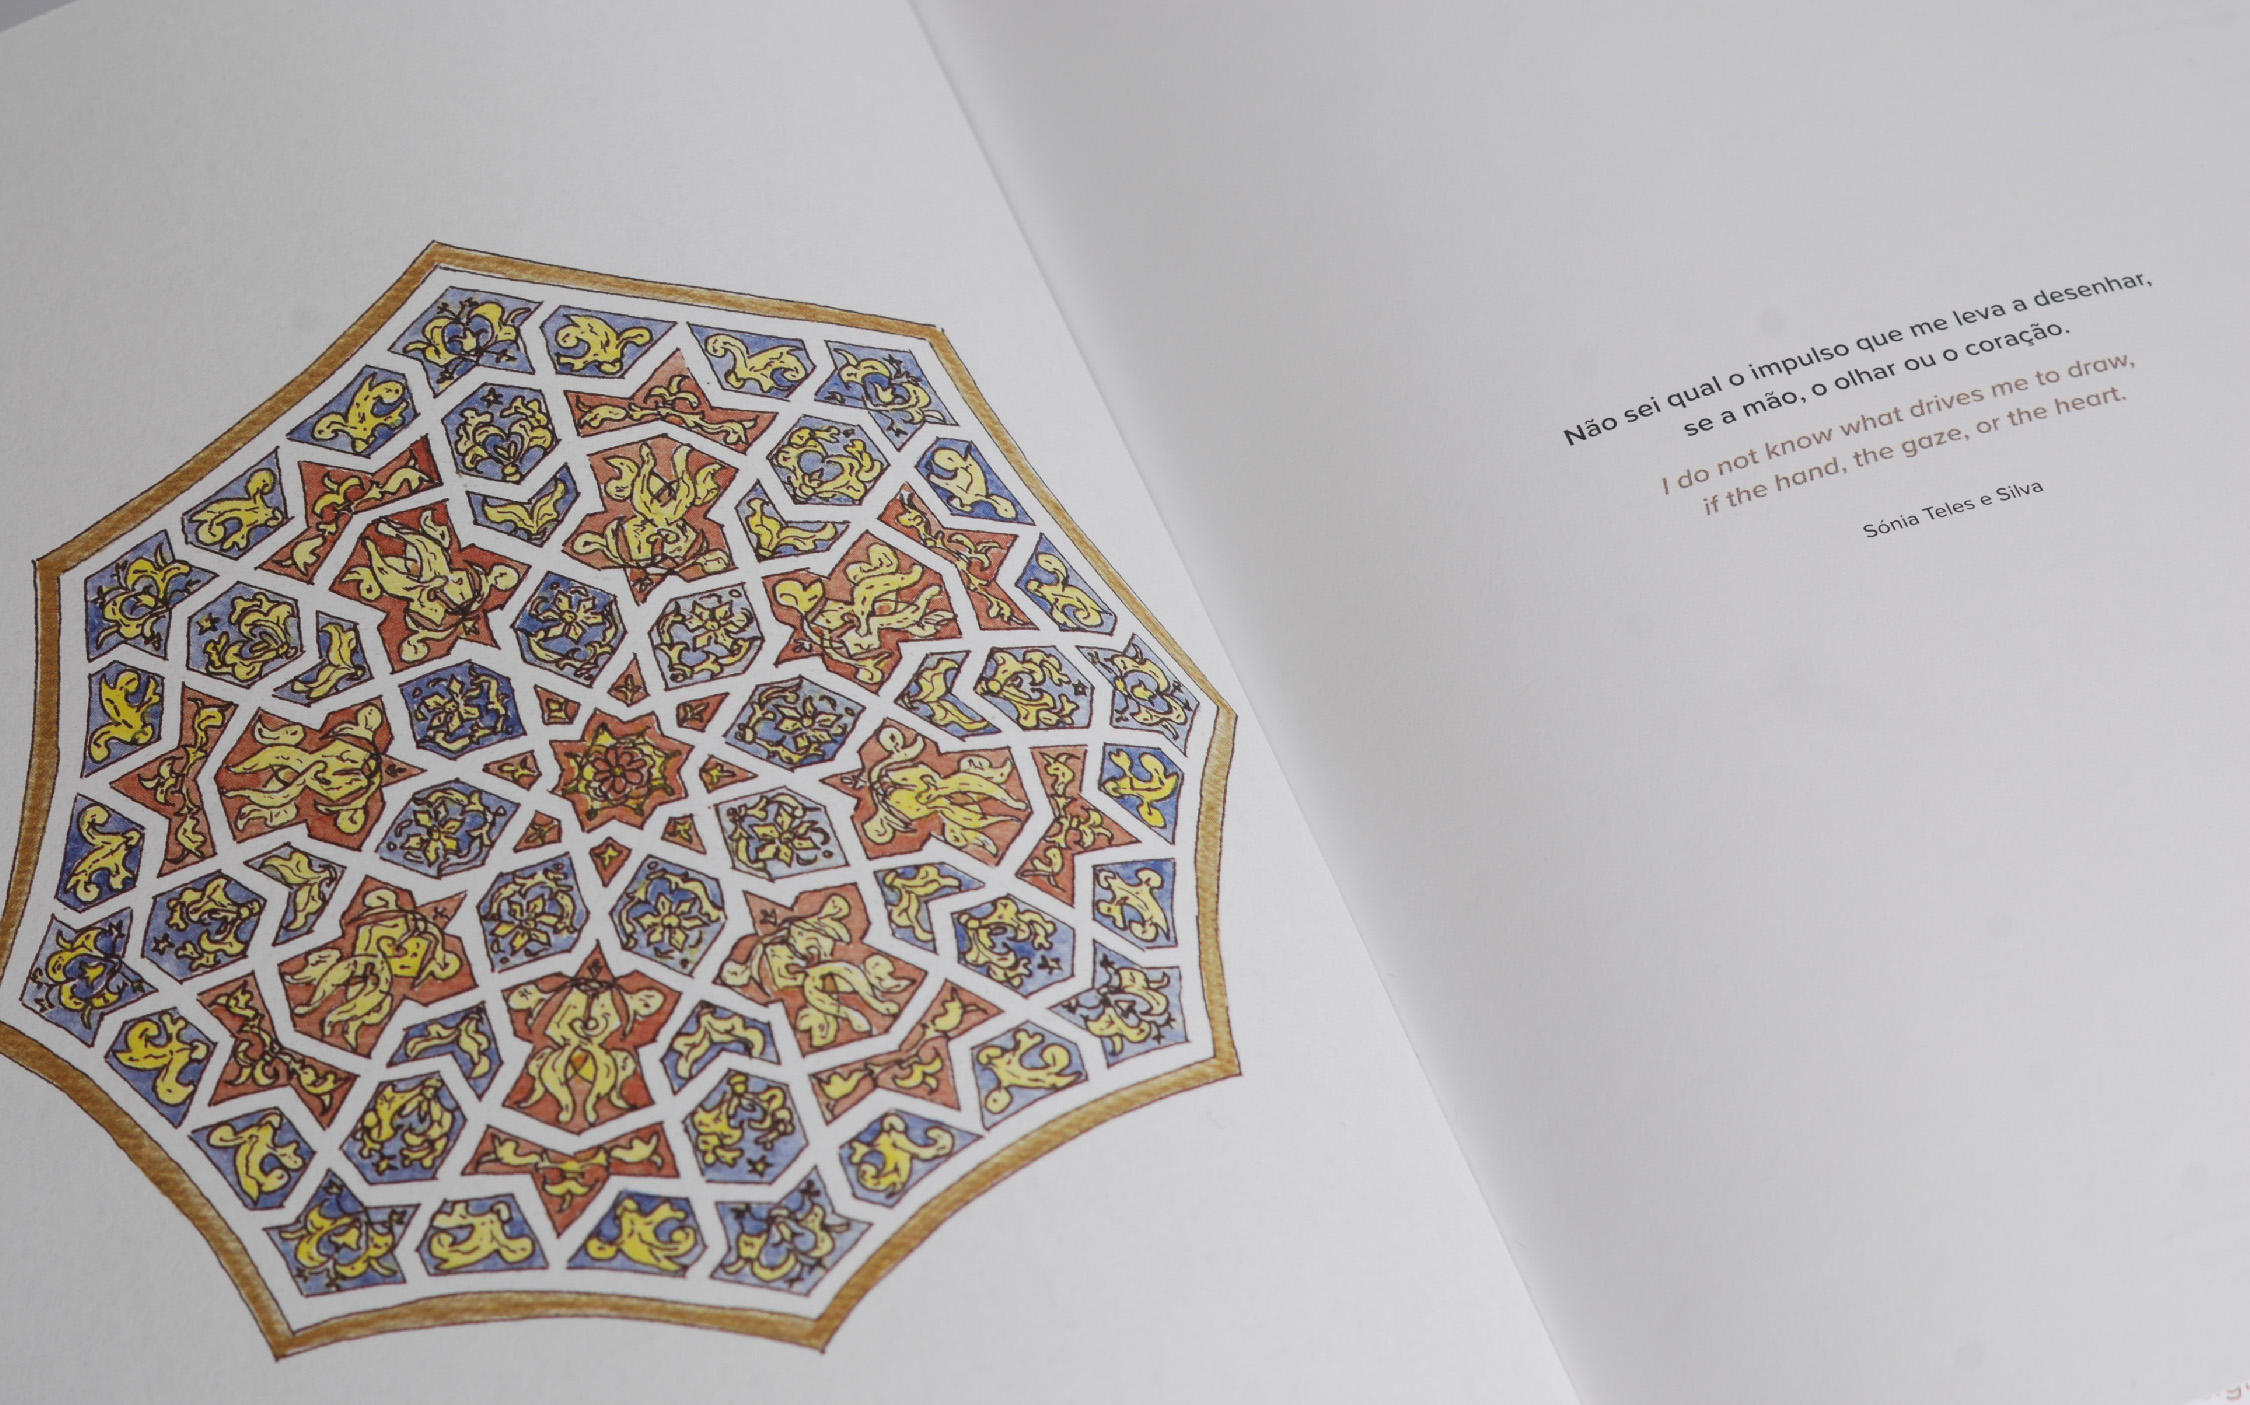 Não sei qual o impulso que me leva a desenhar,
se a mão, o olhar ou o coração.
I do not know what drives me to draw,
if the hand, the gaze, or the heart.
Sónia Teles e Silva